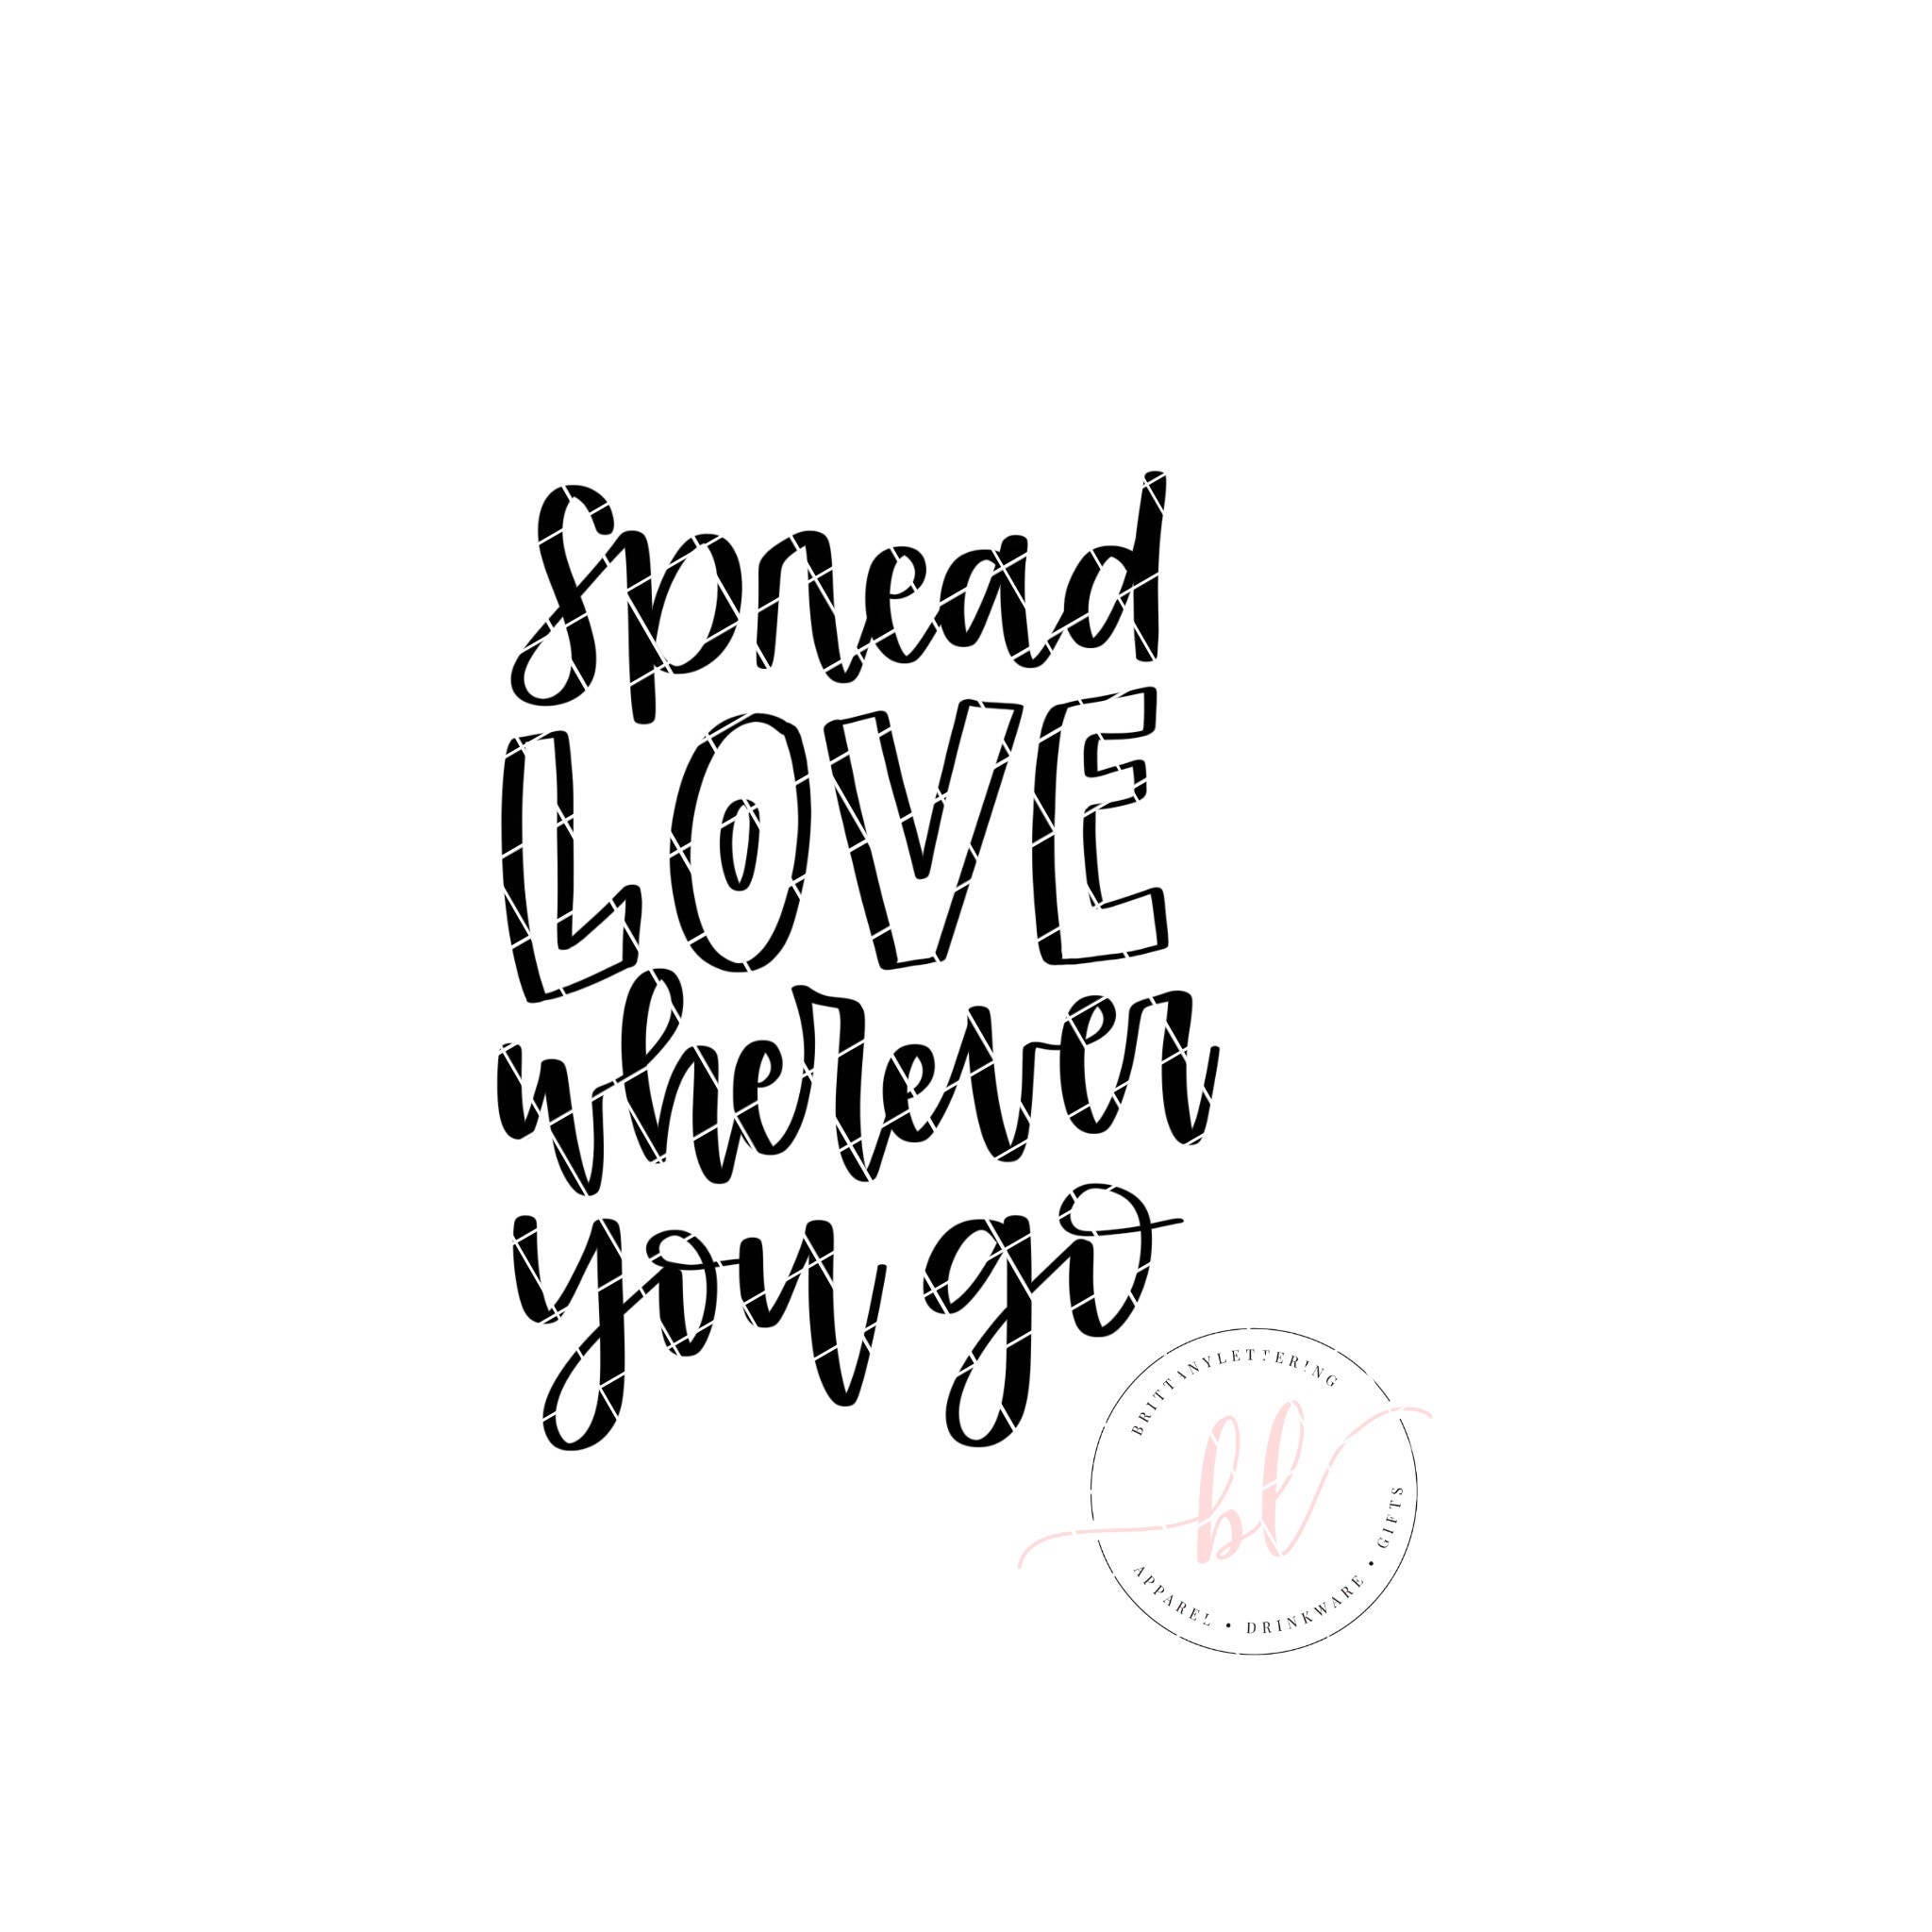 Spread
LOVE
wherever
you go
BRITTANYLETTERING
bl
APPAREL • DRINKWARE • GIFTS